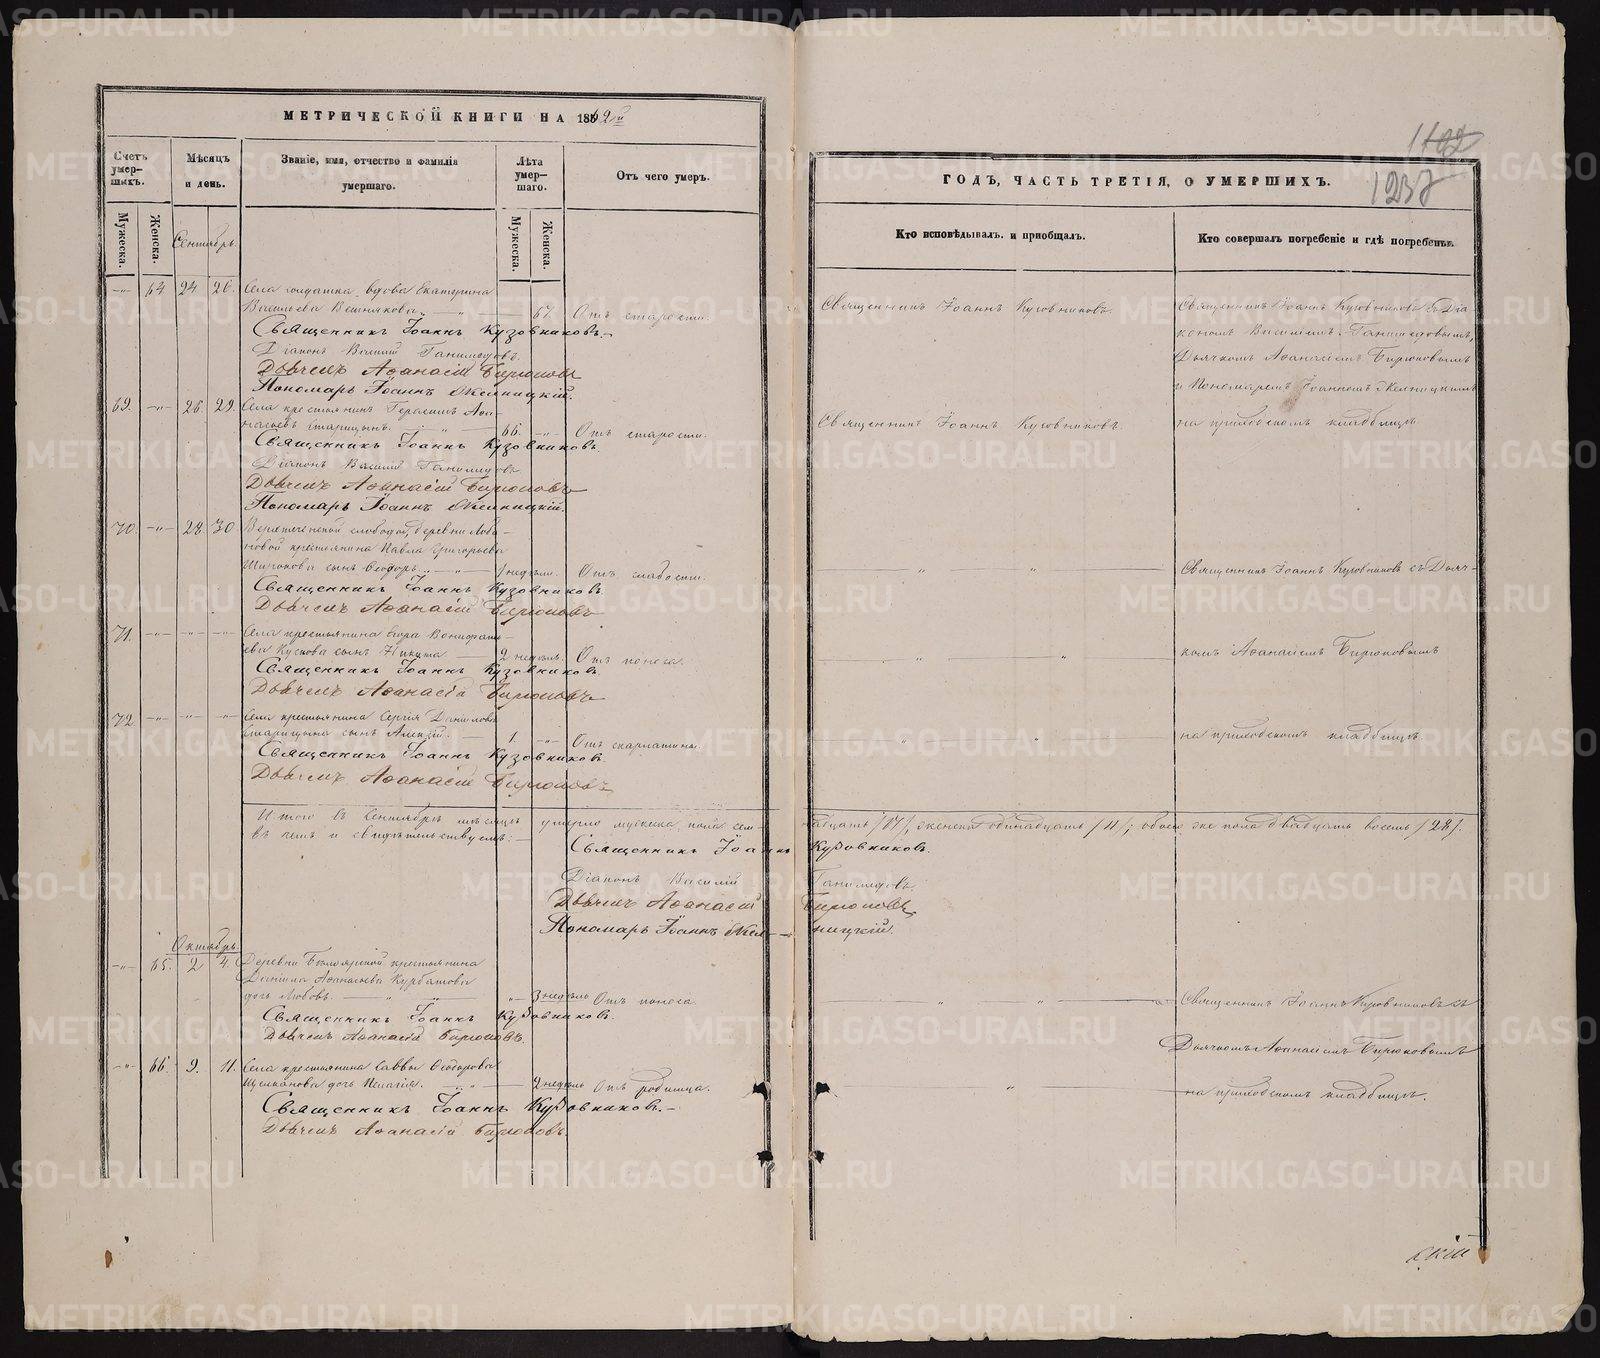 МЕТРИЧЕСКОЙ КНИГИ НА 1862й
Счетъ умер-шихъ.
Мѣсяцъ и день.
Званіе, имя, отчество и фамилія умершаго.
Лѣта умер-шаго.
Отъ чего умеръ.
Мужеска.
Женска.
Сентябрь.
Мужеска.
Женска.
64 24 26. Села солдатка вдова Екатерина
Васильева Вешнякова. 67. Отъ старости.
Священникъ Іоаннъ Кузовниковъ.
Діаконъ Василій Ганимедовъ.
Дьячекъ Аѳанасій Бирюковъ
Пономарь Іоаннъ
69. 26. 29. Села крестьянинъ Герасимъ Аѳа-
насьевъ Старицынъ. 66. Отъ старости.
Священникъ Іоаннъ Кузовниковъ.
Діаконъ Василій Ганимедовъ
Дьячекъ Аѳанасій Бирюковъ
Пономарь Іоаннъ
70. 28. 30. слободы, деревни Лоба-
новой крестьянина Павла Григорьева
сынъ Ѳеодоръ. 1 недѣли. Отъ слабости.
Священникъ Іоаннъ Кузовниковъ.
Дьячекъ Аѳанасій Бирюковъ
71. Села крестьянина
сынъ Никита 2 недѣль. Отъ поноса.
Священникъ Іоаннъ Кузовниковъ.
Дьячекъ Аѳанасій Бирюковъ
72. Села крестьянина Сергія Данилова
Старицына сынъ Алексій. 1. Отъ скарлатина.
Священникъ Іоаннъ Кузовниковъ.
Дьячекъ Аѳанасій Бирюковъ
Итого въ Сентябрѣ мѣсяцѣ умерло мужска пола сем-
въ чемъ и свидѣтельствуемъ:
Священникъ Іоаннъ Кузовниковъ.
Діаконъ Василій Ганимедовъ.
Дьячекъ Аѳанасій Бирюковъ
Пономарь Іоаннъ
Октябрь.
65. 2 4. Деревни Бѣлоярской крестьянина
Даніила Аѳанасьева Курбатова
дочь Любовь. 3 недѣль Отъ поноса
Священникъ Іоаннъ Кузовниковъ.
Дьячекъ Аѳанасій Бирюковъ.
66. 9. 11. Села крестьянина Саввы Ѳеодорова
Щелканова дочь Пелагія. 2 недѣль Отъ родимца.
Священникъ Іоаннъ Кузовниковъ.
Дьячекъ Аѳанасій Бирюковъ.
1237
ГОДЪ, ЧАСТЬ ТРЕТІЯ, О УМЕРШИХЪ.
Кто исповѣдывалъ. и пріобщалъ.
Кто совершалъ погребеніе и гдѣ погребены.
Священникъ Іоаннъ Кузовниковъ.
Священникъ Іоаннъ Кузовниковъ съ Діа-
кономъ Василіемъ Ганимедовымъ,
Дьячкомъ Аѳанасіемъ Бирюковымъ
и Пономаремъ Іоанномъ
Священникъ Іоаннъ Кузовниковъ.
на приходскомъ кладбищѣ
Священникъ Іоаннъ Кузовниковъ съ Дьяч-
комъ Аѳанасіемъ Бирюковымъ
на приходскомъ кладбищѣ
надцать /17/, женска одинадцать /11/; обоего же пола двадцать восемь /28/.
Священникъ Іоаннъ Кузовниковъ съ
Дьячкомъ Аѳанасіемъ Бирюковымъ
на приходскомъ кладбищѣ.
скій
METRIKI.GASO-URAL.RU